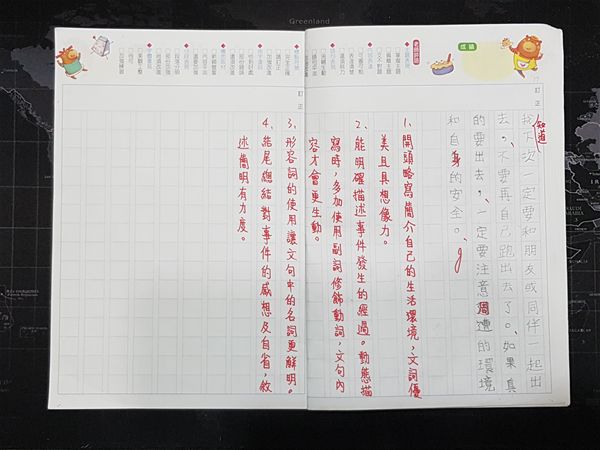 Greenland
成績
老師評語
訂正
知道
於下次一定要和朋友或同伴一起出
去，不要再自己跑出去了。如果真
的要出去，一定要注意周遭的環境
和自身的安全。
1、開頭略寫簡介自己的生活環境，文詞優
美且具想像力。
2、能明確描述事件發生的經過。動態描
寫時，多加使用副詞修飾動詞，文句內
容才會更生動。
3、形容詞的使用讓文句中的名詞更鮮明。
4、結尾總結對事件的感想及自省，敘
述簡明有力度。
訂正